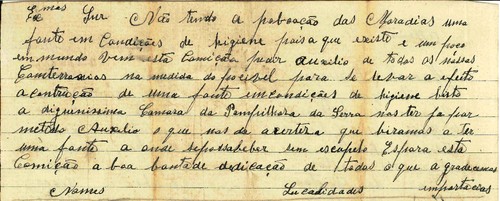 Ex mos
Snr Não tendo a poboação das Moradias uma
fonte em condições de higiene pois a que existe e um poço
inmundo vem esta Comição pedir auxilio de todos os nossos
Conterranios na medida do pocibel para se lebar a efeito
a contrução de uma fonte in condições de higiene bisto
a dignissima Camara da Pampilhosa da Serra nos ter ja por
metido Auxilio o que nos da acerteza que biramos a ter
uma fonte a onde se posa beber sem escrupelo Espara esta
Comição a boa bontade dedicação de todos o que agradecemos
Nomes Lucalidades importacias